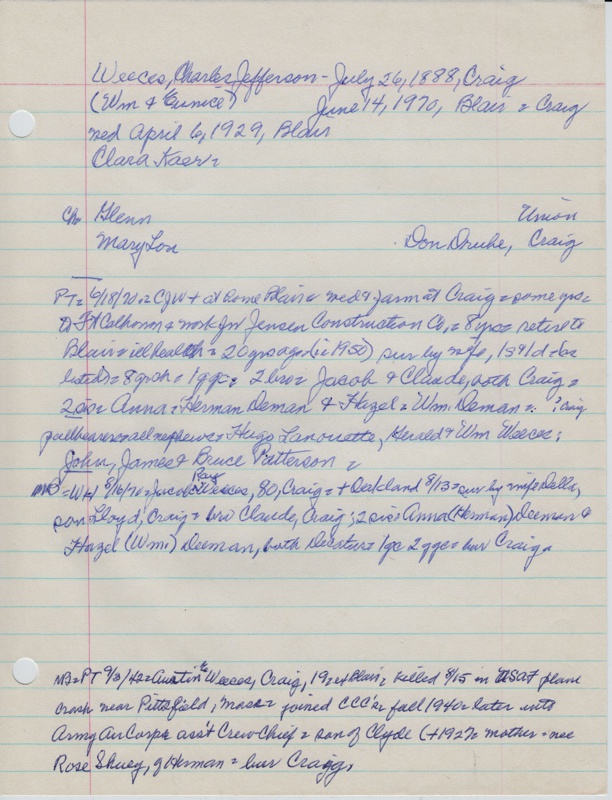 Weeces, Charles Jefferson - July 26, 1888, Craig
(Wm & Eunice) June 14, 1970, Blair = Craig
med April 6, 1929, Blair
Clara Kaer =
Ch. Glenn Union
Mary Lou Don Druhe, Craig
PT = 6/18/70 = CJW + at home Blair = med & farm at Craig = some yrs =
Ft Calhoun = work for Jensen Construction Co, = 8 yrs = retire to
Blair = ill health = 20 yrs ago (i.e 1950) sur by wife, 1s 1d = (as
listed) = 8 gch = 1 ggc = 2 bro = Jacob & Claude, both Craig =
2 sis = Anna = Herman Deman & Hazel = Wm Deman = ; Craig
pallbearers = all nephews = Hugo Lanouette, Herald & Wm Weeces;
John, James & Bruce Patterson =
NB = WH 8/16/70 = Jacob Ray Weeces, 80, Craig = + Oakland 8/13 = sur by wife Della,
son Lloyd, Craig = bro Claude, Craig; 2 sis = Anna (Herman) Deeman &
Hazel (Wm) Deeman, both Decatur = 1 gc 2 ggc = bur Craig.
NB = PT 9/3/42 = Austin Weeces, Craig, 19 = Blair = killed 8/15 in USAF plane
crash near Pittsfield, Mass = joined CCC's = fall 1940 = later into
Army Air Corps = ass't Crew Chief = son of Clyde (+1927 = mother = nee
Rose Shuey, of Herman = bur Craig.